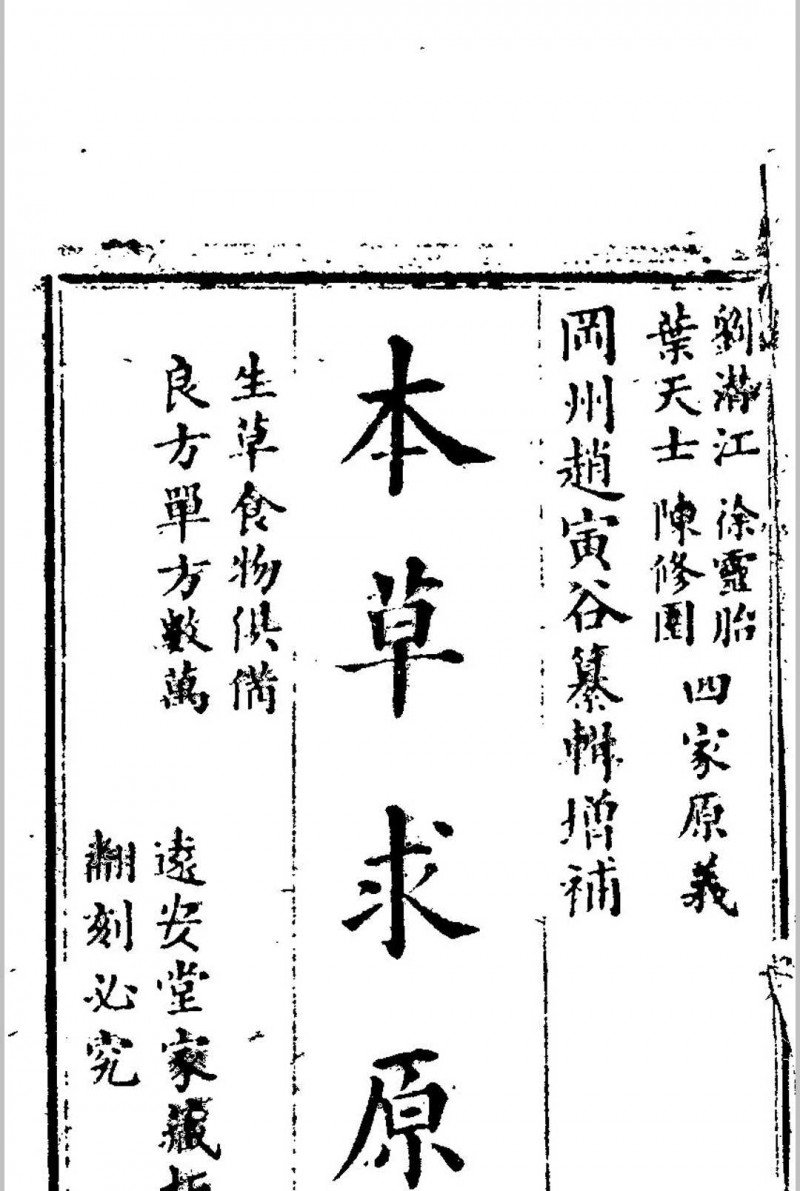 劉潛江 徐靈胎
葉天士 陳修園
四家原義
岡州趙寅谷纂輯增補
本草求原
生草食物俱備
良方單方數萬
遠安堂家藏板
翻刻必究